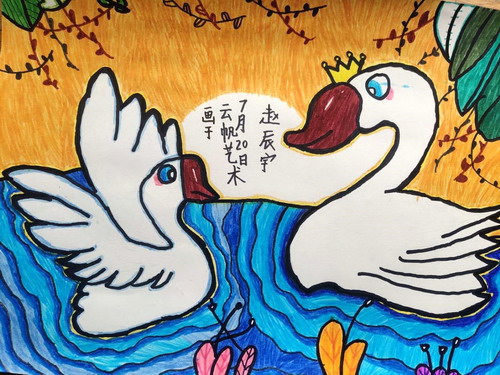 赵辰宇
7月20日
云帆艺术
画于